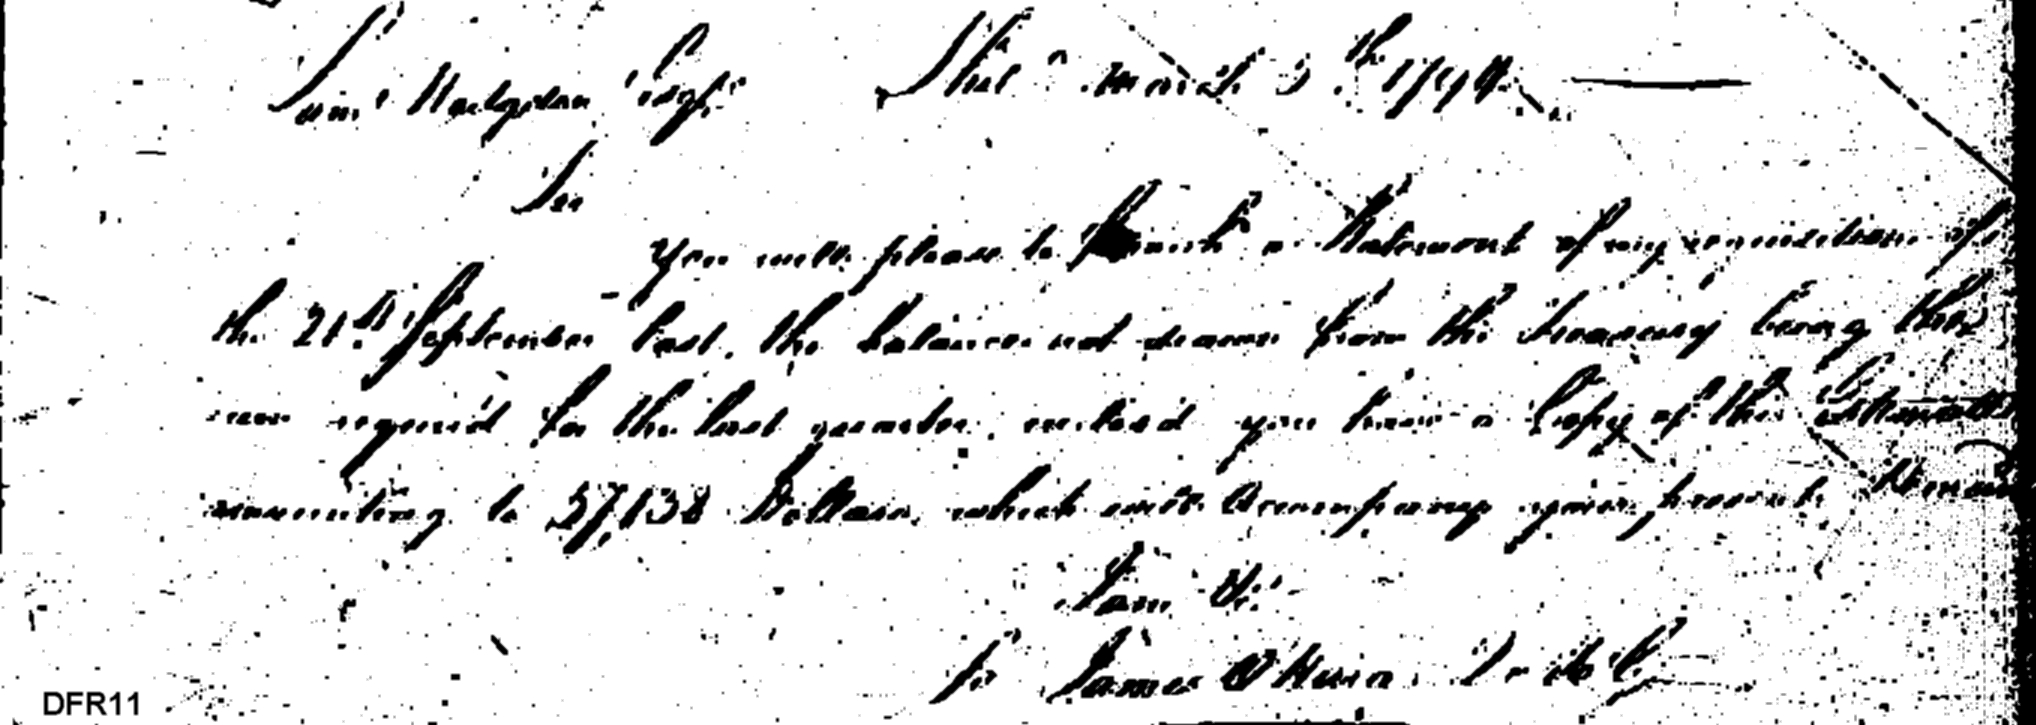 Saml Hodgdon Esqr Phila March 5th 1794
Sir
You will please to furnish a Statement of my requisition of
the 21st September last, the balance not drawn from the Treasury being then
non requir'd for the last quarter, inclosed you have a Copy of the Estimate
amounting to 37,132 Dollars, which will Accompany your present
I am &c
James O'Hara
DFR11